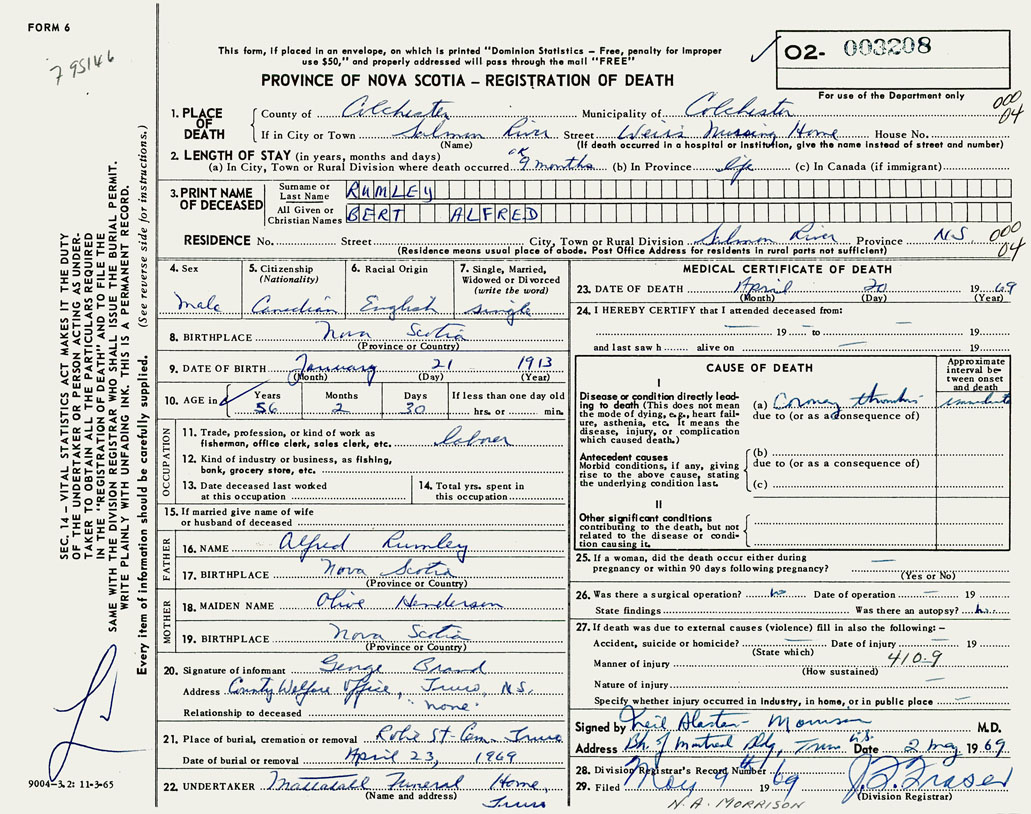 FORM 6
795146
This form, if placed in an envelope, on which is printed "Dominion Statistics – Free, penalty for improper
use $50," and properly addressed will pass through the mail "FREE"
PROVINCE OF NOVA SCOTIA – REGISTRATION OF DEATH
O2- 003208
For use of the Department only
1. PLACE OF DEATH
County of Colchester Municipality of Colchester
000
04
If in City or Town Salmon River Street Weirs Nursing Home House No.
(Name) (If death occurred in a hospital or institution, give the name instead of street and number)
2. LENGTH OF STAY (in years, months and days)
(a) In City, Town or Rural Division where death occurred 9 months (b) In Province life (c) In Canada (if immigrant)
3. PRINT NAME OF DECEASED
Surname or Last Name RUMLEY
All Given or Christian Names BERT ALFRED
RESIDENCE No. Street City, Town or Rural Division Salmon River Province N.S.
000
04
(Residence means usual place of abode. Post Office Address for residents in rural parts not sufficient)
4. Sex
Male
5. Citizenship
(Nationality)
Canadian
6. Racial Origin
English
7. Single, Married,
Widowed or Divorced
(write the word)
single
8. BIRTHPLACE Nova Scotia
(Province or Country)
9. DATE OF BIRTH January 21 1913
(Month) (Day) (Year)
10. AGE in
Years Months Days If less than one day old
56 2 30 hrs. or min.
OCCUPATION
11. Trade, profession, or kind of work as
fisherman, office clerk, sales clerk, etc. labner
12. Kind of industry or business, as fishing,
bank, grocery store, etc.
13. Date deceased last worked
at this occupation
14. Total yrs. spent in
this occupation
15. If married give name of wife
or husband of deceased
FATHER
16. NAME Alfred Rumley
17. BIRTHPLACE Nova Scotia
(Province or Country)
MOTHER
18. MAIDEN NAME Olive Henderson
19. BIRTHPLACE Nova Scotia
(Province or Country)
20. Signature of informant George Brand
Address County Welfare Office, Truro, N.S.
Relationship to deceased "none"
21. Place of burial, cremation or removal Robie St. Cem. Truro
Date of burial or removal April 23, 1969
22. UNDERTAKER Mattatall Funeral Home,
(Name and address) Truro
MEDICAL CERTIFICATE OF DEATH
23. DATE OF DEATH April 20 1969
(Month) (Day) (Year)
24. I HEREBY CERTIFY that I attended deceased from:
— 19 — to — 19
and last saw h alive on — 19
CAUSE OF DEATH
Approximate
interval be-
tween onset
and death
I
Disease or condition directly lead-
ing to death (This does not mean
the mode of dying, e.g., heart fail-
ure, asthenia, etc. It means the
disease, injury, or complication
which caused death.)
(a) Coronary thrombosis immediate
due to (or as a consequence of)
Antecedent causes
Morbid conditions, if any, giving
rise to the above cause, stating
the underlying condition last.
(b)
due to (or as a consequence of)
(c)
II
Other significant conditions
contributing to the death, but not
related to the disease or condi-
tion causing it.
25. If a woman, did the death occur either during
pregnancy or within 90 days following pregnancy? —
(Yes or No)
26. Was there a surgical operation? no Date of operation — 19
State findings Was there an autopsy? no
27. If death was due to external causes (violence) fill in also the following: –
Accident, suicide or homicide? — Date of injury — 19
(State which)
Manner of injury — 410-9
(How sustained)
Nature of injury —
Specify whether injury occurred in Industry, in home, or in public place —
Signed by Neil Alastair Morrison M.D.
Address Bk of Montreal Bldg, Truro N.S. Date 2 May 1969
28. Division Registrar's Record Number
29. Filed May 9th 1969 J.B. Fraser
(Division Registrar)
N.A. MORRISON
SEC. 14 – VITAL STATISTICS ACT MAKES IT THE DUTY
OF THE UNDERTAKER OR PERSON ACTING AS UNDER-
TAKER TO OBTAIN ALL THE PARTICULARS REQUIRED
IN THE "REGISTRATION OF DEATH" AND TO FILE THE
SAME WITH THE DIVISION REGISTRAR WHO SHALL ISSUE THE BURIAL PERMIT.
WRITE PLAINLY WITH UNFADING INK. THIS IS A PERMANENT RECORD.
Every item of information should be carefully supplied. (See reverse side for instructions.)
9004–3.2: 11-3-65